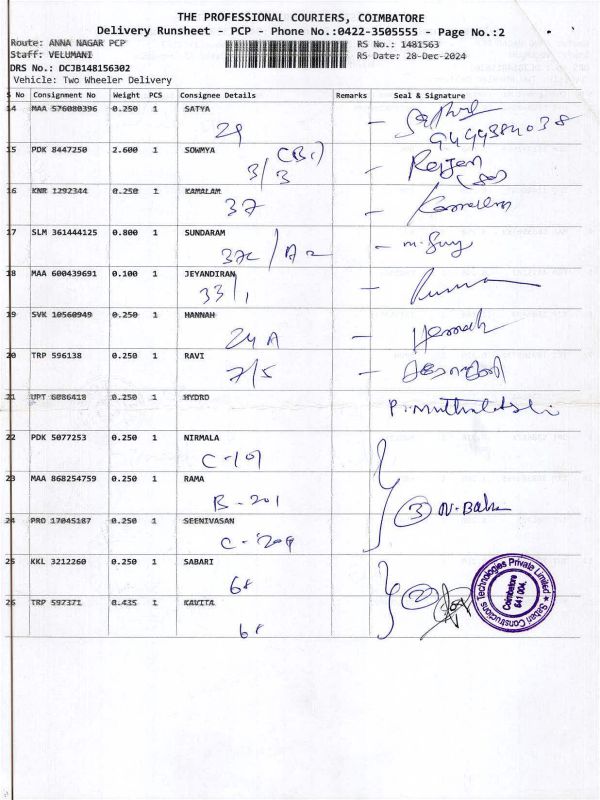 THE PROFESSIONAL COURIERS, COIMBATORE
Delivery Runsheet - PCP - Phone No.:0422-3505555 - Page No.:2
Route: ANNA NAGAR PCP RS No.: 1481563
Staff: VELUMANI RS Date: 28-Dec-2024
DRS No.: DCJB148156302
Vehicle: Two Wheeler Delivery
S No Consignment No Weight PCS Consignee Details Remarks Seal & Signature
14 MAA 576080396 0.250 1 SATYA
29 - 9499384038
15 PDK 8447250 2.600 1 SOWMYA
3/3 - Rajan
16 KNR 1292344 0.250 1 KAMALAM
37 -
17 SLM 361444125 0.800 1 SUNDARAM
37c/A2 -
18 MAA 600439691 0.100 1 JEYANDIRAN
33/1 -
19 SVK 10560949 0.250 1 HANNAH
24 A - Hannah
20 TRP 596138 0.250 1 RAVI
7/5 -
21 UPT 6086418 0.250 1 HYDRO
P. Muthulakshmi
22 PDK 5077253 0.250 1 NIRMALA
C-101
23 MAA 868254759 0.250 1 RAMA
B-201
3 N. Babu
24 PRO 17045187 0.250 1 SEENIVASAN
C-209
25 KKL 3212260 0.250 1 SABARI
68
2
Seban Constructions Technologies Private Limited ★
Coimbatore
641 004.
26 TRP 597371 0.435 1 KAVITA
68